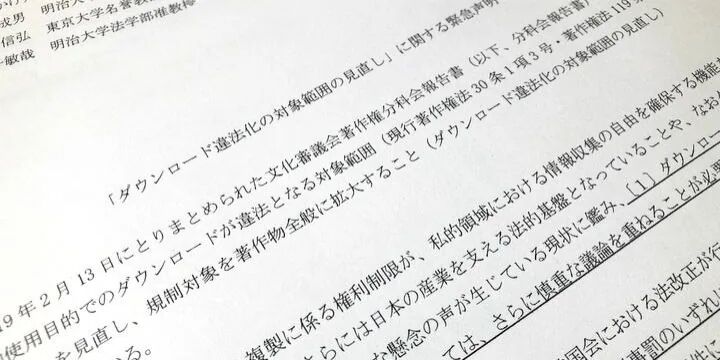 明治大
信弘 東京大学名誉教
敏哉 明治大学法学部准教
「ダウンロード違法化の対象範囲の見直し」に関する緊急声明
9年2月13日にとりまとめられた文化審議会著作権分科会報告書（以下、分科会報告書）
使用目的でのダウンロードが違法となる対象範囲（現行著作権法30条1項3号・著作権法119
を見直し、規制対象を著作物全般に拡大すること（ダウンロード違法化の対象範囲の見直し）
いる。
複製に係る権利制限が、私的領域における情報収集の自由を確保する機能
さらには日本の産業を支える法的基盤となっていることや、なお
な懸念の声が生じている現状に鑑み、（1）ダウンロー
ては、さらに慎重な議論を重ねることが必要
国会における法改正が行
事罰のいずれ